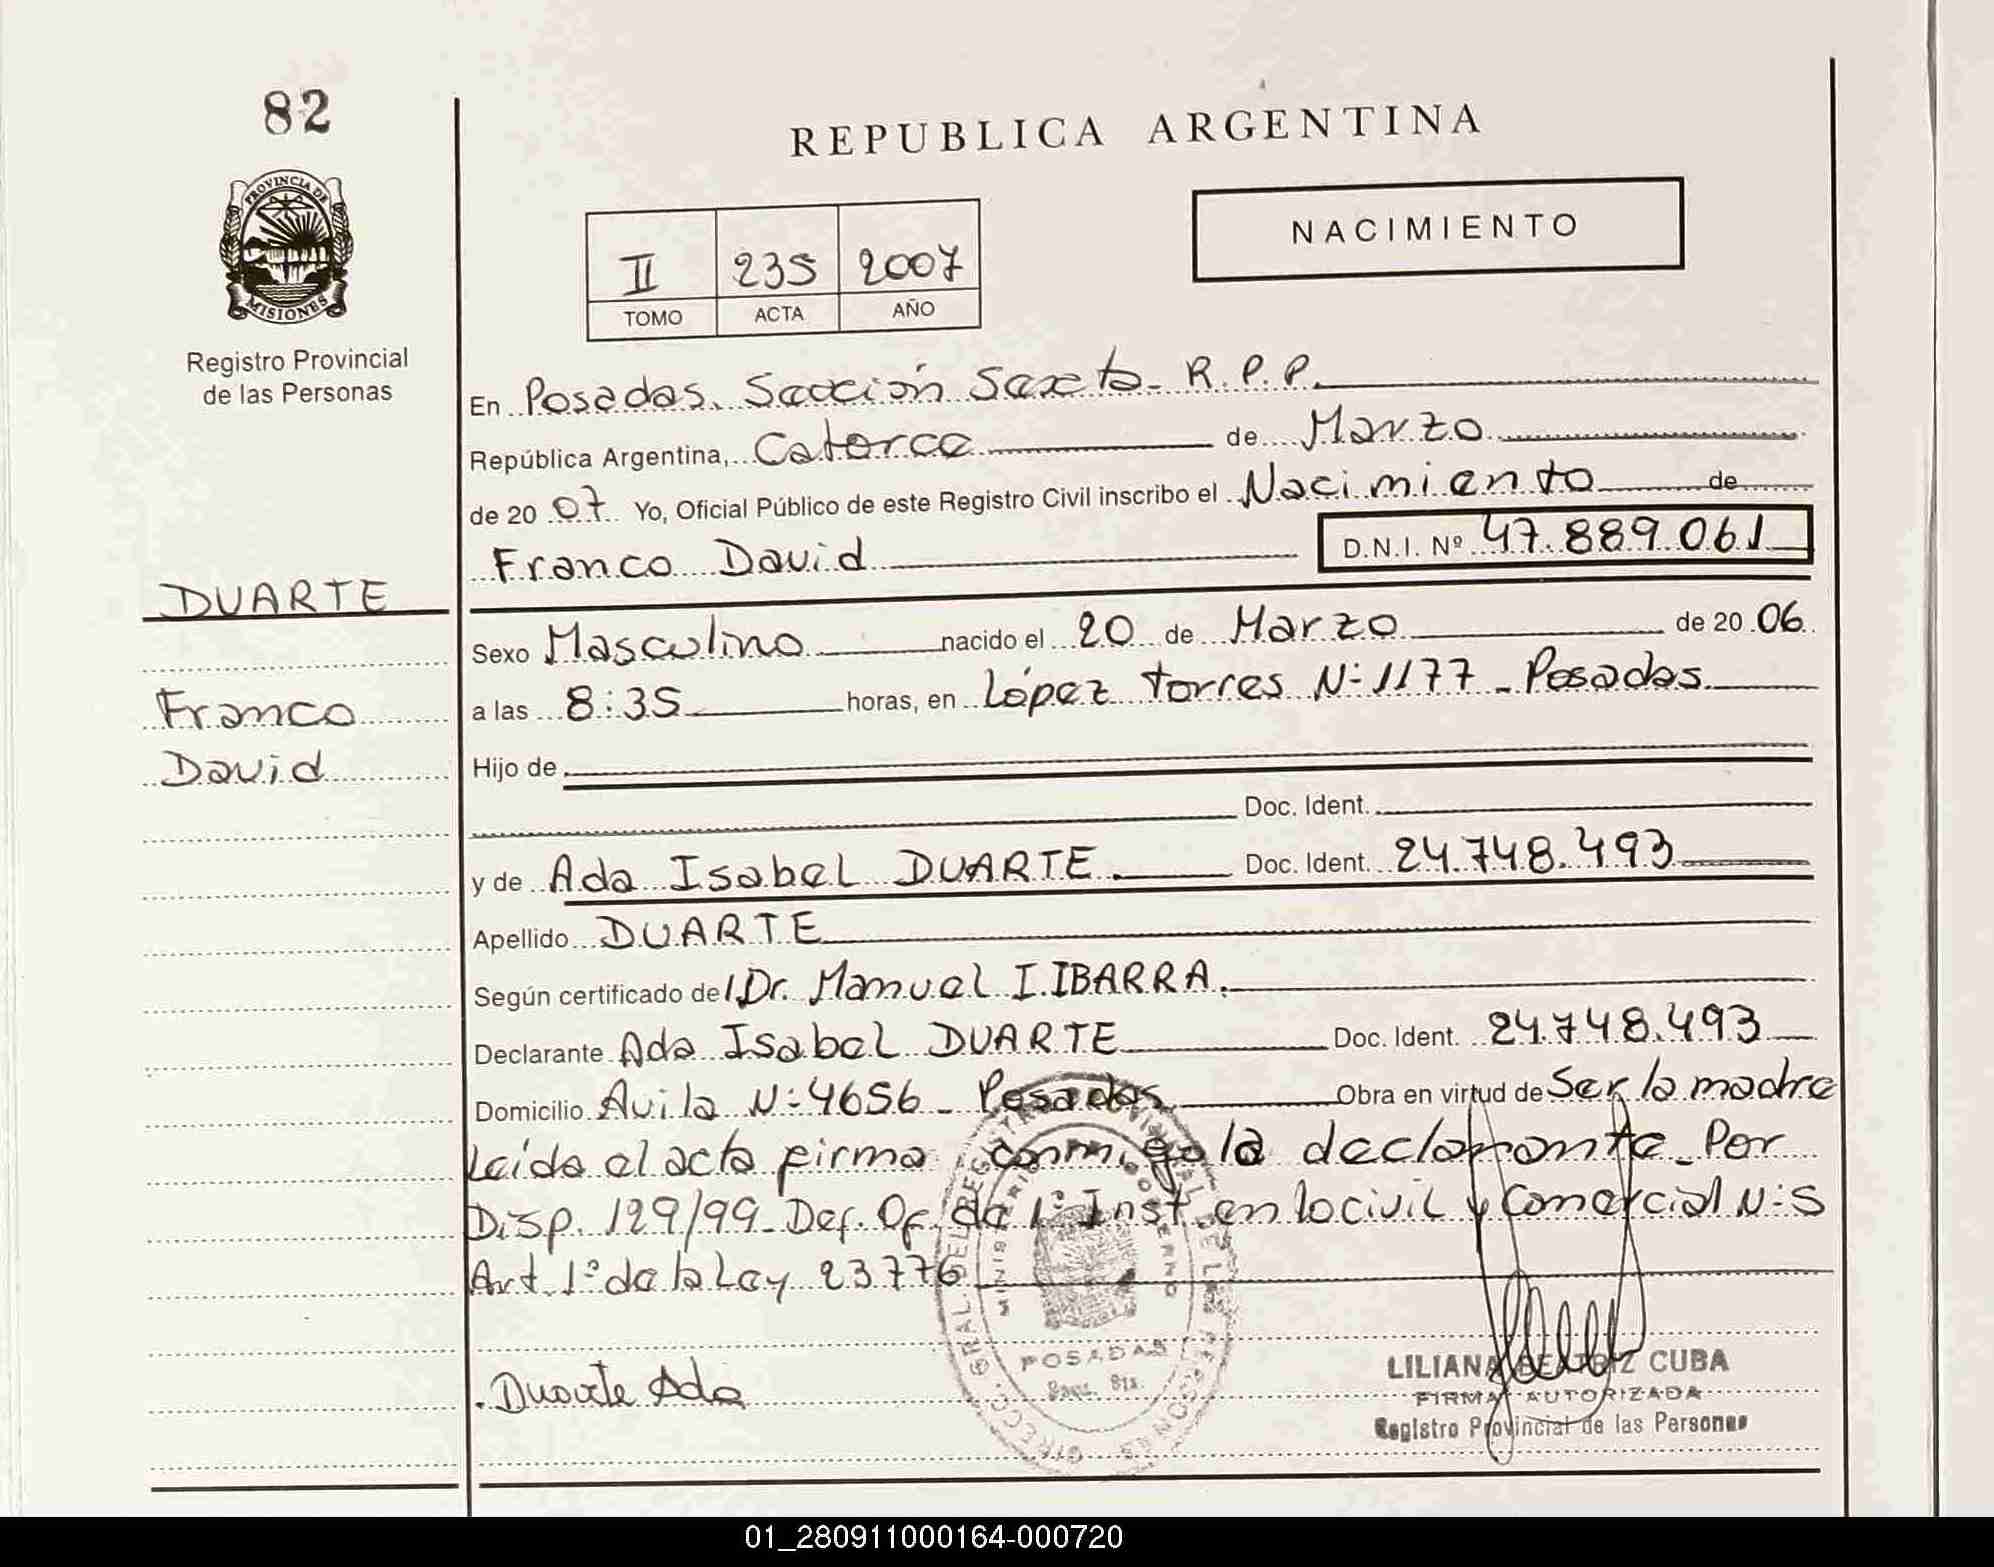 82
PROVINCIA DE
MISIONES
Registro Provincial
de las Personas
DUARTE
Franco
David
REPUBLICA ARGENTINA
NACIMIENTO
II 235 2007
TOMO ACTA AÑO
En Posadas, Sección Sexta - R.P.P.
República Argentina, Catorce de Marzo
de 2007 Yo, Oficial Público de este Registro Civil inscribo el Nacimiento de
Franco David D.N.I. Nº 47.889.061
Sexo Masculino nacido el 20 de Marzo de 2006
a las 8:35 horas, en López Torres Nº 1177 - Posadas
Hijo de
Doc. Ident.
y de Ada Isabel DUARTE. Doc. Ident. 24.748.493
Apellido DUARTE
Según certificado del Dr. Manuel I. IBARRA.
Declarante Ada Isabel DUARTE Doc. Ident. 24.748.493
Domicilio Avila Nº 4656 - Posadas Obra en virtud de Ser la madre
Leída el acta firma conmigo la declarante - Por
Disp. 129/99 - Def. Of. de 1º Inst. en lo civil y Comercial Nº 5
Art. 1º de la Ley 23.776
Duarte Ada
POSADAS
LILIANA BEATRIZ CUBA
FIRMA AUTORIZADA
Registro Provincial de las Personas
01_280911000164-000720